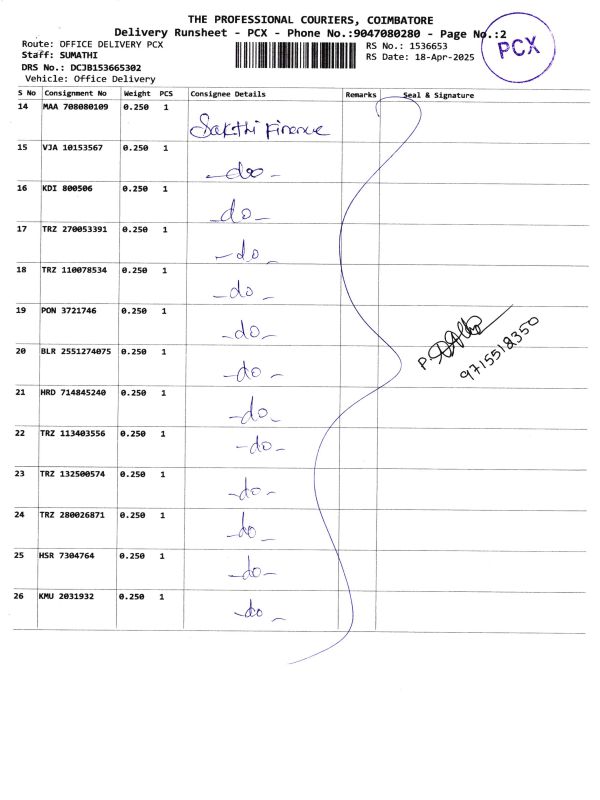 THE PROFESSIONAL COURIERS, COIMBATORE
Delivery Runsheet - PCX - Phone No.:9047080280 - Page No.:2
Route: OFFICE DELIVERY PCX
RS No.: 1536653
Staff: SUMATHI
RS Date: 18-Apr-2025
DRS No.: DCJB153665302
Vehicle: Office Delivery
PCX
S No Consignment No Weight PCS Consignee Details Remarks Seal & Signature
14 MAA 708080109 0.250 1 Sakthi Finance
15 VJA 10153567 0.250 1 -do-
16 KDI 800506 0.250 1 -do-
17 TRZ 270053391 0.250 1 -do-
18 TRZ 110078534 0.250 1 -do-
19 PON 3721746 0.250 1 -do-
20 BLR 2551274075 0.250 1 -do-
21 HRD 714845240 0.250 1 -do-
22 TRZ 113403556 0.250 1 -do-
23 TRZ 132500574 0.250 1 -do-
24 TRZ 280026871 0.250 1 -do-
25 HSR 7304764 0.250 1 -do-
26 KMU 2031932 0.250 1 -do-
P.
9715518350